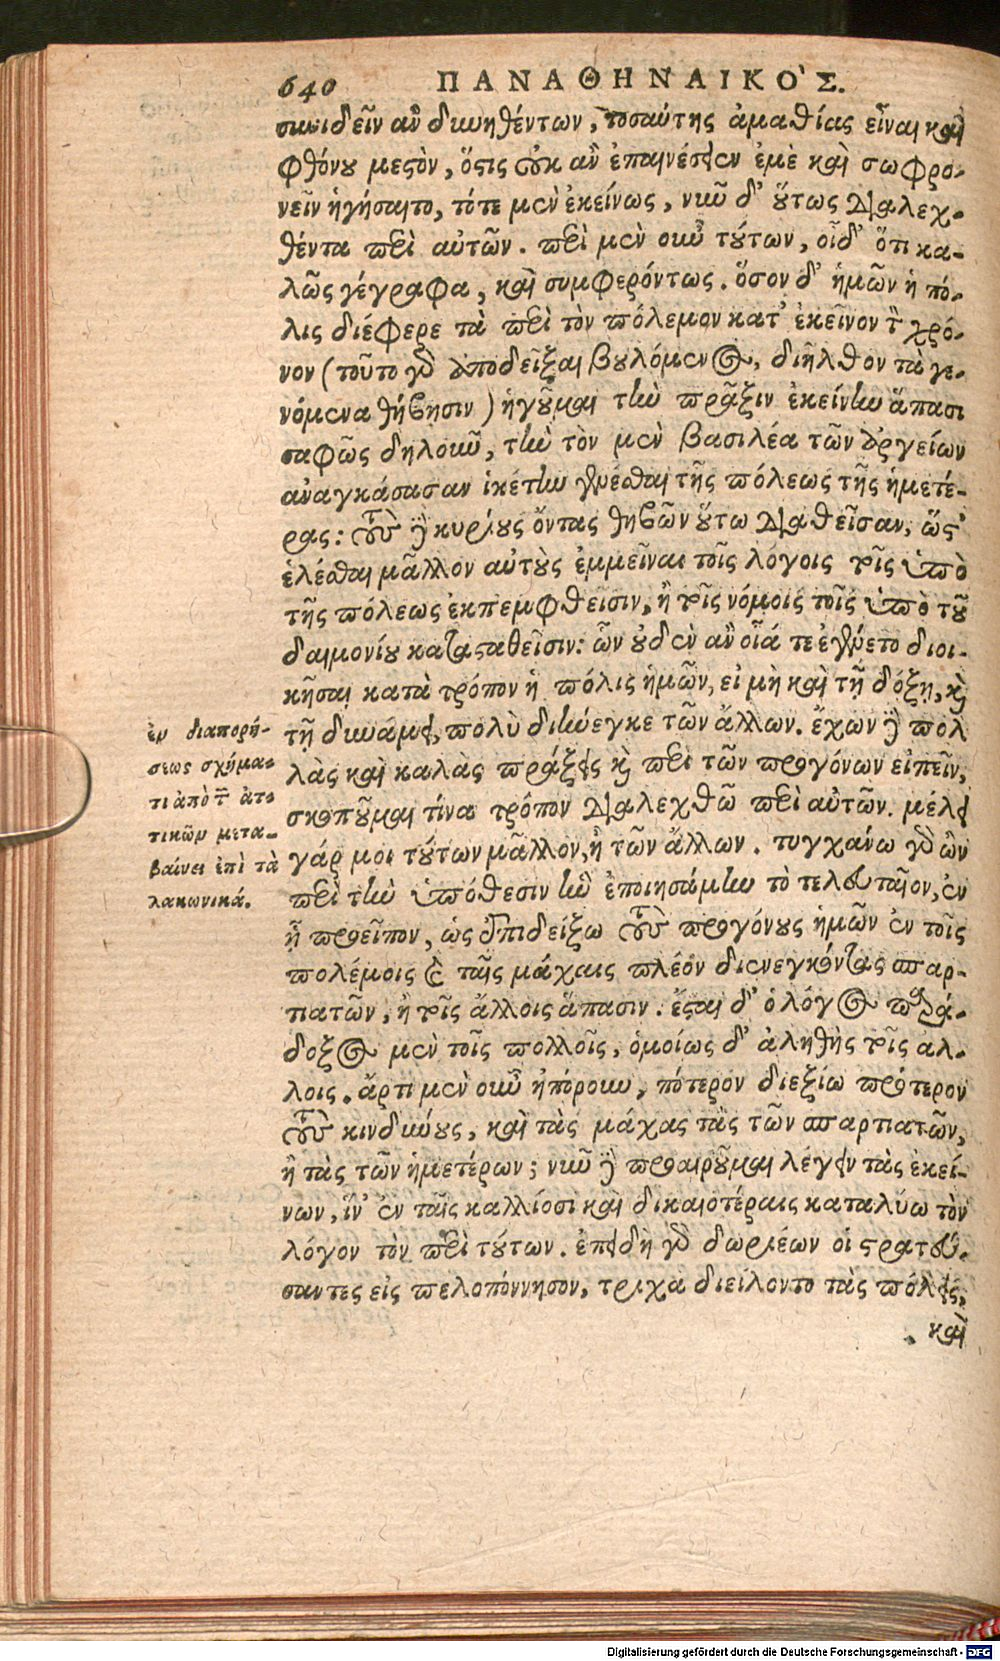 640 ΠΑΝΑΘΗΝΑΙΚΟ'Σ.
συνιδεῖν ἂν δυνηθέντων, τοσαύτης ἀμαθίας εἶναι καὶ
φθόνου μεστὸν, ὅστις οὐκ ἂν ἐπαινέσειεν ἐμὲ καὶ σωφρο-
νεῖν ἡγήσαιτο, τότε μὲν ἐκείνως, νῦν δ' οὕτως διαλεχ-
θέντα περὶ αὐτῶν. περὶ μὲν οὖν τούτων, οἶδ' ὅτι κα-
λῶς γέγραφα, καὶ συμφερόντως. ὅσον δ' ἡμῶν ἡ πό-
λις διέφερε τὰ περὶ τὸν πόλεμον κατ' ἐκεῖνον τὸν χρό-
νον (τοῦτο γὰρ ἀποδεῖξαι βουλόμενος, διῆλθον τὰ γε-
νόμενα θήβησιν) ἡγοῦμαι τὴν πρᾶξιν ἐκείνην ἅπασι
σαφῶς δηλοῦν, τὴν τὸν μὲν βασιλέα τῶν ἀργείων
ἀναγκάσασαν ἱκέτην γενέσθαι τῆς πόλεως τῆς ἡμετέ-
ρας: τοὺς δὲ κυρίους ὄντας θηβῶν οὕτω διαθεῖσαν, ὥσθ'
ἑλέσθαι μᾶλλον αὐτοὺς ἐμμεῖναι τοῖς λόγοις τοῖς ὑπὸ
τῆς πόλεως ἐκπεμφθεῖσιν, ἢ τοῖς νόμοις τοῖς ὑπὸ τοῦ
δαιμονίου κατασταθεῖσιν: ὧν οὐδὲν ἂν οἵα τε ἐγένετο διοι-
κῆσαι κατὰ τρόπον ἡ πόλις ἡμῶν, εἰ μὴ καὶ τῇ δόξῃ, καὶ
τῇ δυνάμει, πολὺ διήνεγκε τῶν ἄλλων. ἔχων δὲ πολ
λὰς καὶ καλὰς πράξεις καὶ περὶ τῶν προγόνων εἰπεῖν,
σκοποῦμαι τίνα τρόπον διαλεχθῶ περὶ αὐτῶν. μέλει
γάρ μοι τούτων μᾶλλον, ἢ τῶν ἄλλων. τυγχάνω γὰρ ὢν
περὶ τὴν ὑπόθεσιν ἣν ἐποιησάμην τὸ τελευταῖον, ἐν
ᾗ προεῖπον, ὡς ἐπιδείξω τοὺς προγόνους ἡμῶν ἐν τοῖς
πολέμοις καὶ ταῖς μάχαις πλέον διενεγκόντας σπαρ-
τιατῶν, ἢ τοῖς ἄλλοις ἅπασιν. ἔσται δ' ὁ λόγος παρά-
δοξος μὲν τοῖς πολλοῖς, ὁμοίως δ' ἀληθὴς τοῖς ἄλ-
λοις. ἄρτι μὲν οὖν ἠπόρουν, πότερον διεξίω πρότερον
τοὺς κινδύνους, καὶ τὰς μάχας τὰς τῶν σπαρτιατῶν,
ἢ τὰς τῶν ἡμετέρων; νῦν δὲ προαιροῦμαι λέγειν τὰς ἐκεί-
νων, ἵν' ἐν ταῖς καλλίοσι καὶ δικαιοτέραις καταλύω τὸν
λόγον τὸν περὶ τούτων. ἐπειδὴ γὰρ δωριέων οἱ στρατεύ-
σαντες εἰς πελοπόννησον, τρίχα διείλοντο τὰς πόλεις,
καὶ
ἐν διαπορή-
σεως σχήμα-
τι ἀπὸ τῶν ἀττι
τικῶν μετα-
βαίνει ἐπὶ τὰ
λακωνικά.
Digitalisierung gefördert durch die Deutsche Forschungsgemeinschaft - DFG